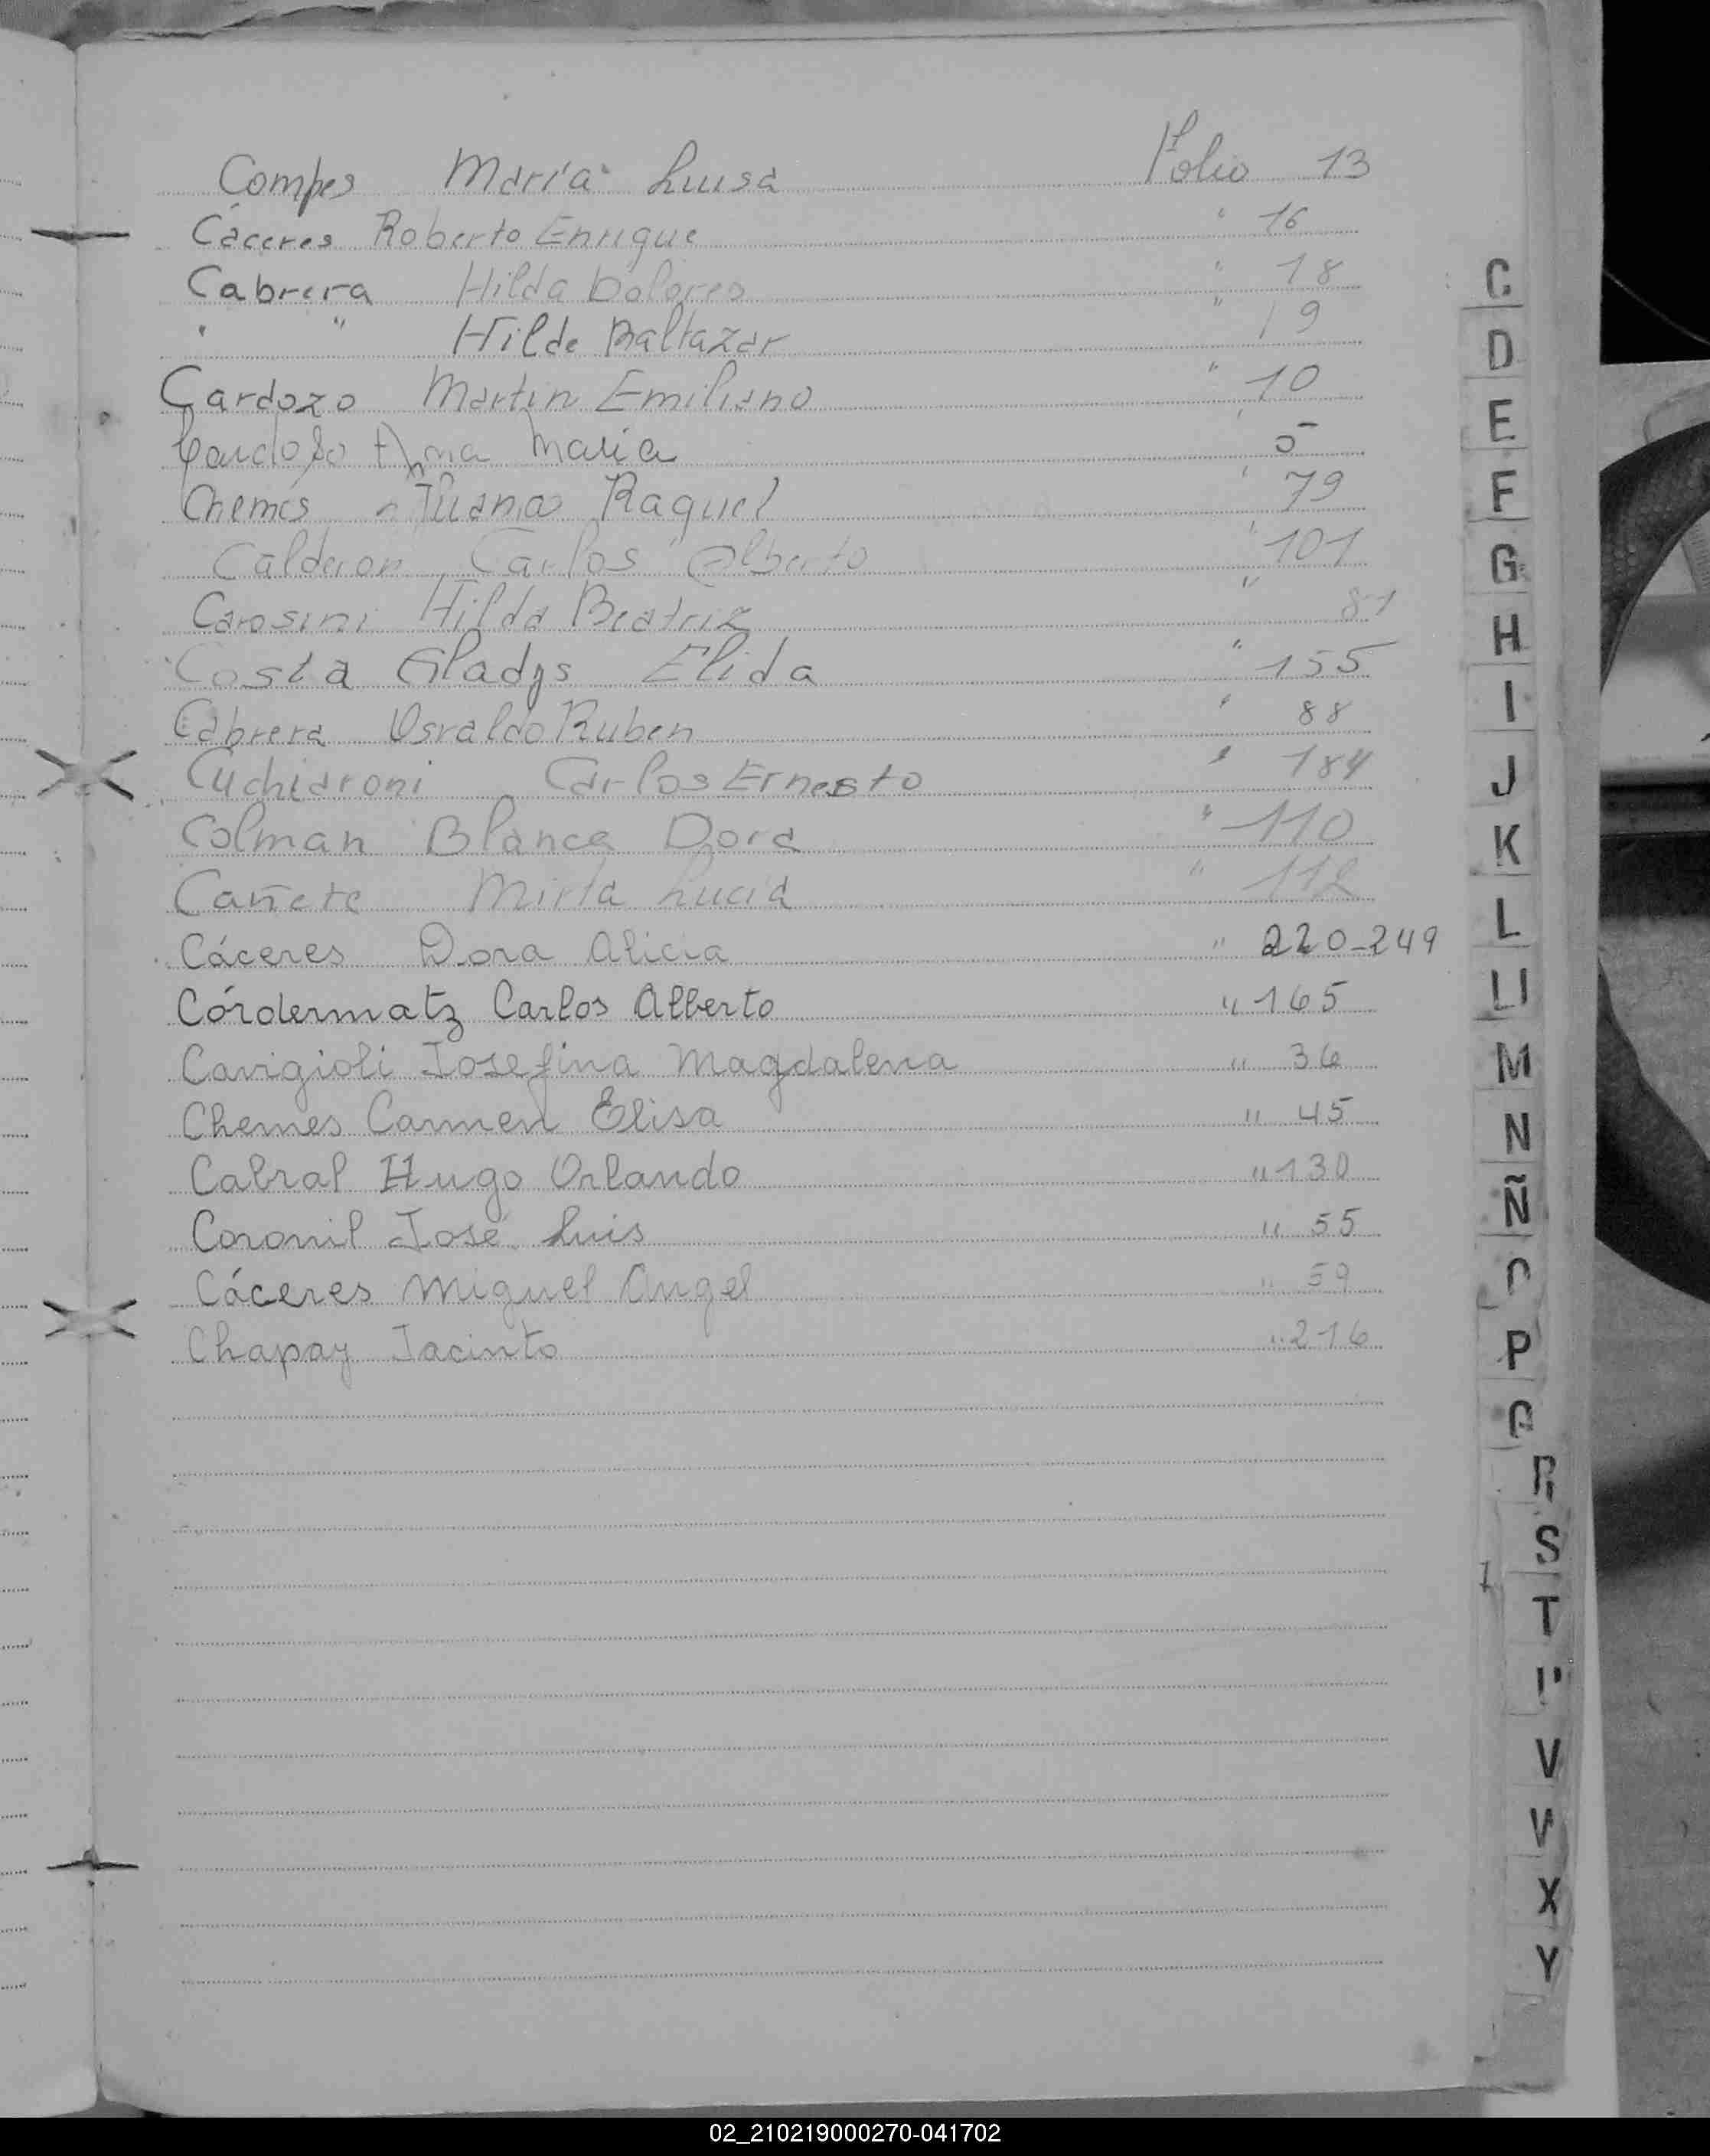 Compes María Luisa Folio 13
Cáceres Roberto Enrique " 16
Cabrera Hilda Dolores " 18
" " Hilde Baltazar " 19
Cardozo Martin Emiliano " 10
Cardoso Ana Maria " 5
Chemes Juana Raquel " 79
Calderon Carlos Alberto " 101
Carosini Hilda Beatriz " 81
Costa Gladys Elida " 155
Cabrera Osvaldo Ruben " 88
Cuchiaroni Carlos Ernesto " 184
Colman Blanca Dora " 110
Cañete Mirta Lucia " 112
Cáceres Dora Alicia " 220-249
Córdermatz Carlos Alberto " 165
Cavigioli Josefina Magdalena " 36
Chemes Carmen Elisa " 45
Cabral Hugo Orlando " 130
Coronil José Luis " 55
Cáceres Miguel Angel " 59
Chapay Jacinto " 216
C
D
E
F
G
H
I
J
K
L
Ll
M
N
Ñ
O
P
Q
R
S
T
U
V
W
X
Y
02_210219000270-041702